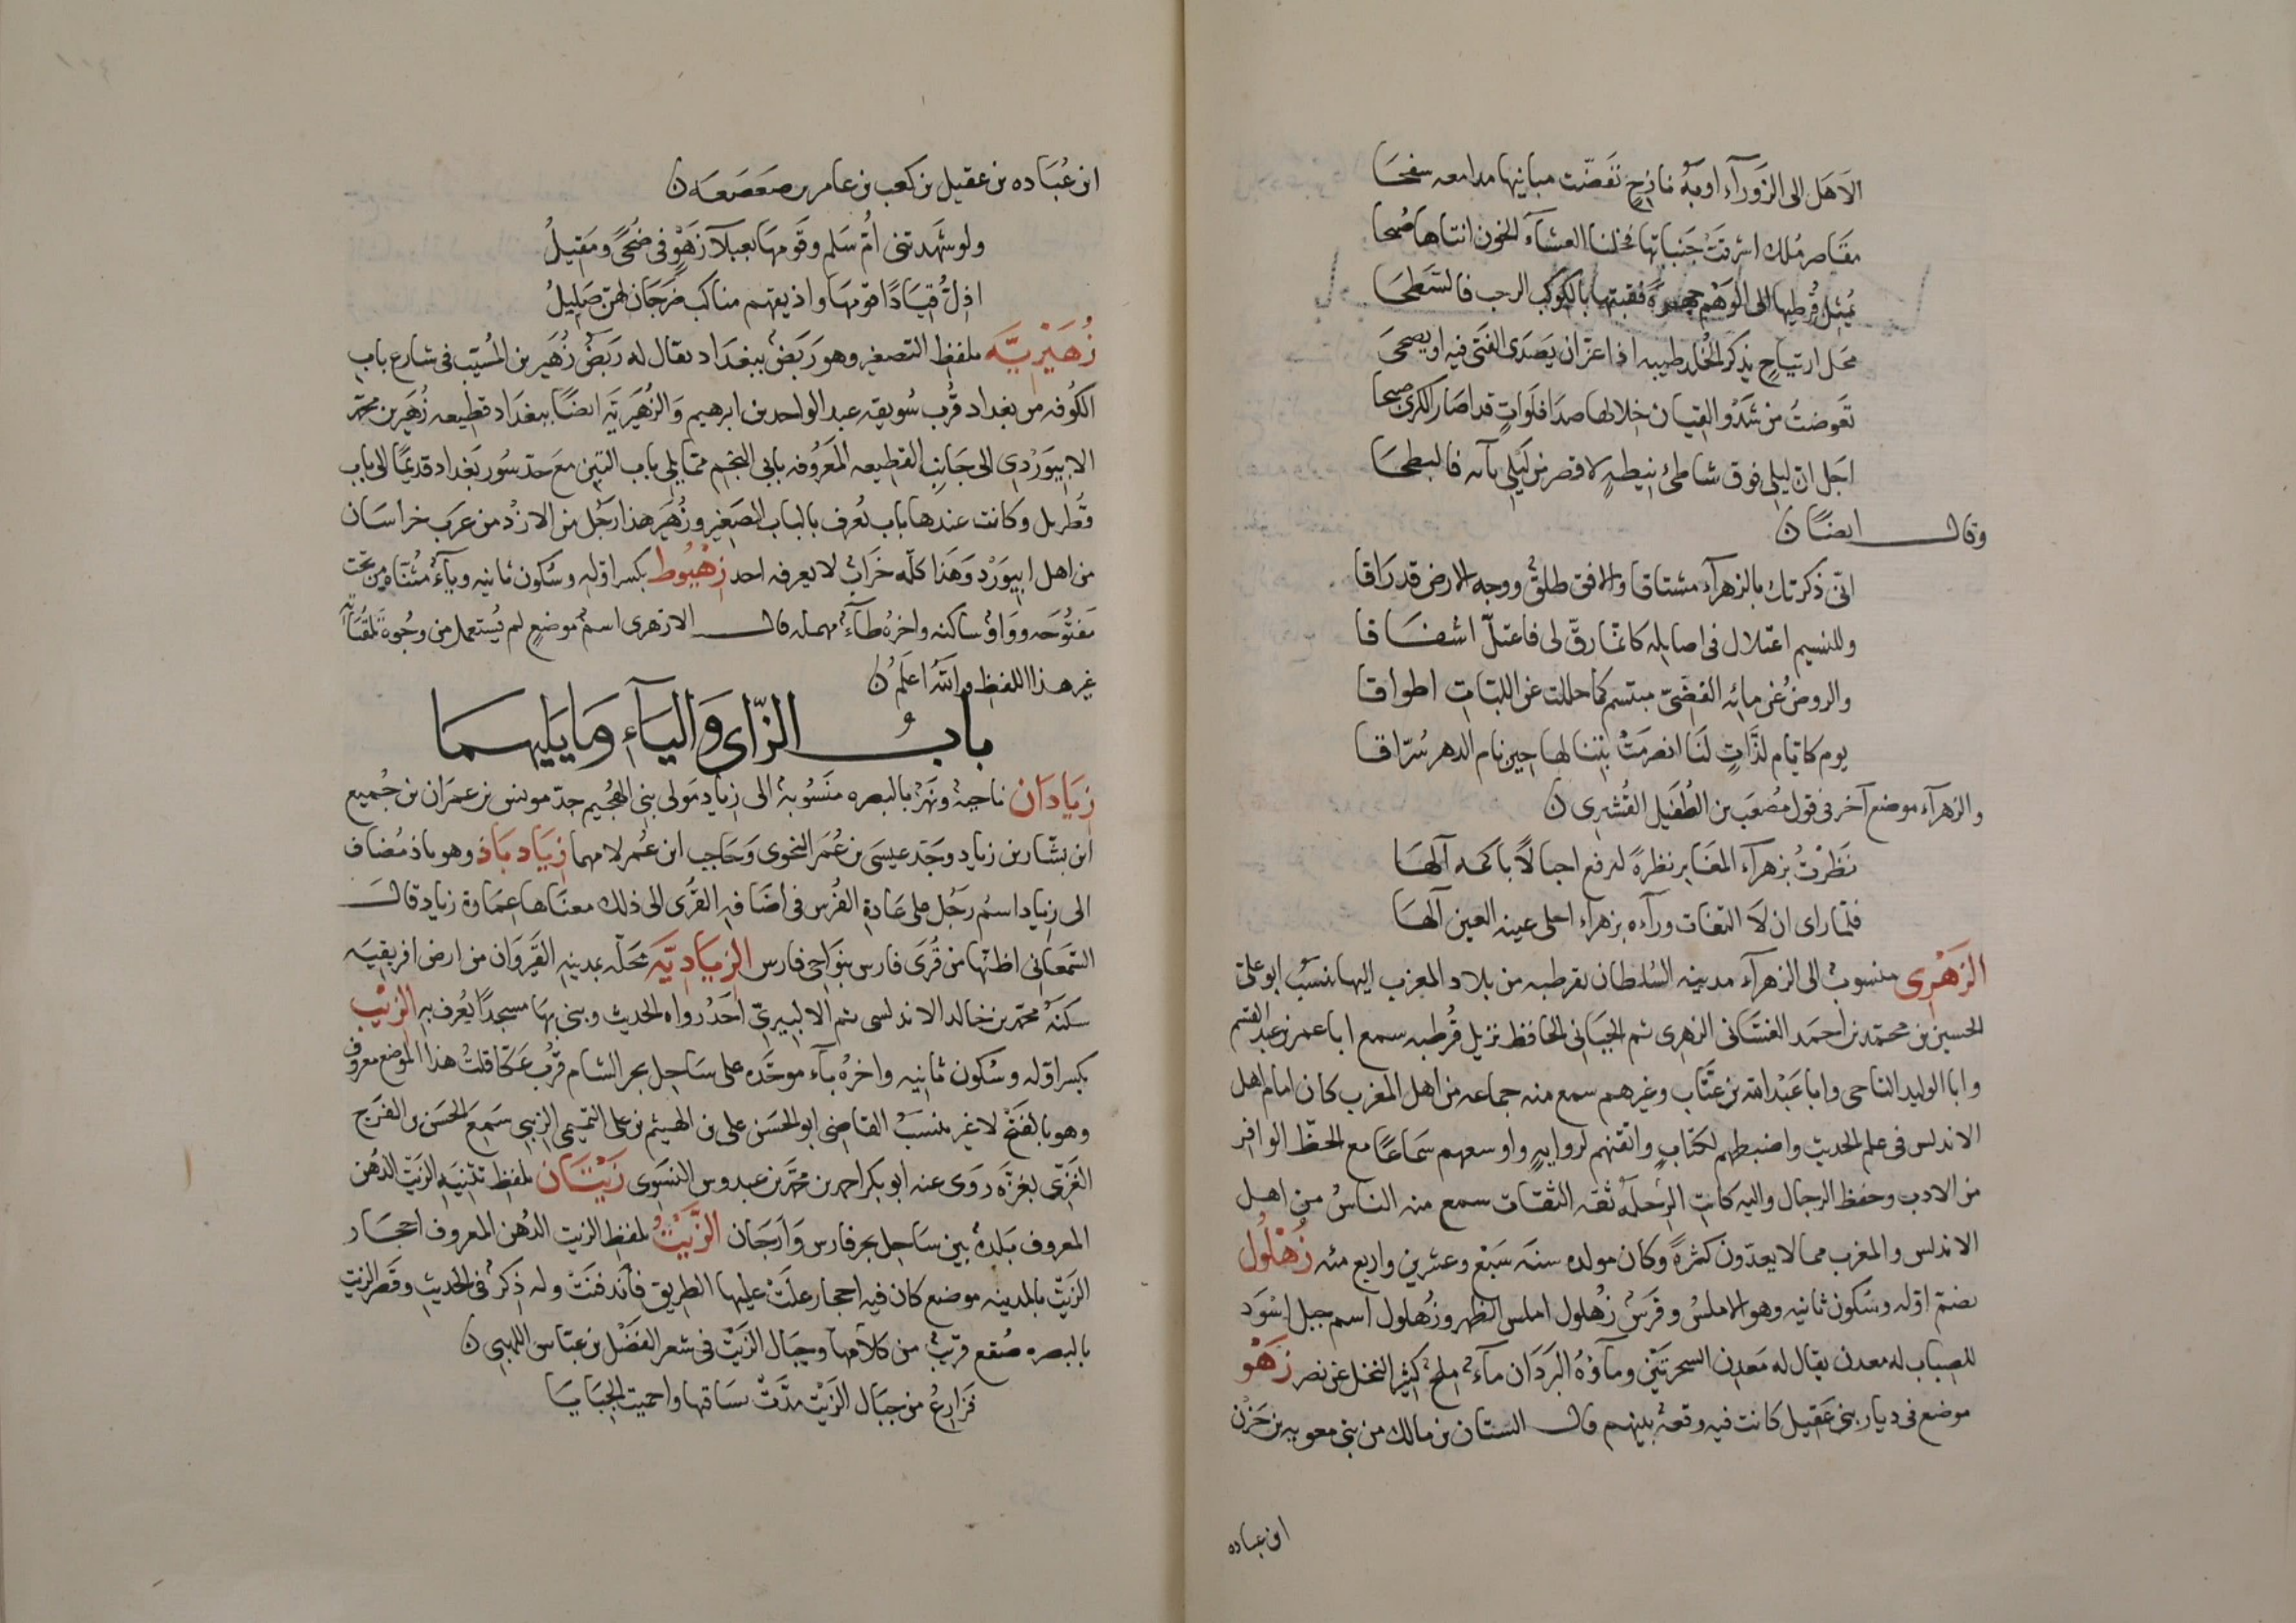 الا هل الى الزوراء اوبة نازح تقضت مبانيها مدامعه سفحا
مقاصر ملك اشرقت جنباتها فخلنا العشاء الجون اثناها صبحا
يمثل قرطيها الى الوهم جهرة فقبتها بالكوكب الرحب فالسطحا
محل ارتياح يذكر الخلد طيبه اذا عز ان يصدى الفتى فيه او يضحى
تعوضت من شدو القيان خلالها صدا فلوات قد اصار الكرى صبحا
اجل ان ليلي فوق شاطئ نيطة لاقصر من ليلي بآنه فالبطحا
وقال ايضا ن
انى ذكرتك بالزهراء مشتاقا والافق طلق ووجه الارض قد راقا
وللنسيم اعتلال فى اصايله كانما رق لى فاعتل اشفاقا
والروض عن مائه الفضى مبتسم كما حللت عن اللبات اطواقا
يوم كايام لذات لنا انصرمت بتنا لها حين نام الدهر سراقا
والزهراء موضع آخر فى قول مصعب بن الطفيل القشيرى ن
نظرت بزهراء المغابر نظرة ليرفع اجبالا باكمه آلها
فلما راى ان لا التفات وراءه بزهراء اجلى عينه العين آلها
الزهرى منسوب الى الزهراء مدينه السلطان بقرطبه من بلاد المغرب اليها ينسب ابو على
الحسين بن محمد بن احمد الغسانى الزهرى ثم الجيانى الحافظ نزيل قرطبه سمع ابا عمر بن عبد
وابا الوليد الباجى وابا عبد الله بن عتاب وغيرهم سمع منه جماعه من اهل المغرب كان امام اهل
الاندلس فى علم الحديث واضبطهم لكتاب واتقنهم لرواية واوسعهم سماعا مع الحظ الوافر
من الادب وحفظ الرجال واليه كانت الرحله ثقه الثقات سمع منه الناس من اهل
الاندلس والمغرب مما لا يعدون كثرة وكان مولده سنة سبع وعشرين واربع مئه زهلول
بضم اوله وسكون ثانيه وهو الاملس وفرس زهلول املس الظهر وزهلول اسم جبل اسود
للضباب له معدن يقال له معدن الشجرتين وماؤه البردان ماء ملح كثير النخل عن نصر زهو
موضع فى ديار بنى عقيل كانت فيه وقعة بينهم قال السنان بن مالك من بنى معويه بن حزن
ابن عباده
ابن عباده بن عقيل بن كعب بن عامر بن صعصعه ن
ولو شهدتنى ام سلم وقومها بعبلآ زهو فى ضحى ومقيل
زهيرية بلفظ التصغير وهو ربض ببغداد يقال له ربض زهير بن المسيب فى شارع باب
الكوفه من بغداد قرب سويقه عبد الواحد بن ابرهيم والزهيرية ايضا ببغداد قطيعه زهير بن محمد
الابيوردى الى جانب القطيعه المعروفه بابى النجم مما يلى باب التبن مع حد سور بغداد قديما الى باب
قطربل وكانت عندها باب تعرف بالباب الصغير وزهير هذا رجل من الازد من عرب خراسان
من اهل ابيورد وهذا كله خراب لا يعرفه احد زهيوط بكسر اوله وسكون ثانيه وياء مثناه من تحت
مفتوحه وواو ساكنه واخره طاء مهمله قال الازهرى اسم موضع لم يستعمل من وجوه
غير هذا اللفظ والله اعلم ن
باب الزاى والياء وما يليهما
زيادان ناحية ونهر بالبصره منسوبة الى زياد مولى بنى الهجيم جد مونس بن عمران بن جميع
ابن بشار بن زياد وجد عيسى بن عمر النحوى وحاجب ابن عمر لامهما زياد باذ وهو باذ مضاف
الى زياد اسم رجل على عادة الفرس فى اضافه القرى الى ذلك معناها عمارة زياد قال
السمعانى اظنها من قرى فارس بنواحى فارس الزيادية محلة بمدينه القيروان من ارض افريقيه
سكنه محمد بن خالد الاندلسى ثم الالبيرى احد رواه الحديث وبنى بها مسجدا يعرف به الزيب
بكسر اوله وسكون ثانيه واخره باء موحده على ساحل بحر الشام قرب عكا قلت هذا الموضع معروف
وهو بالفتح لا غير ينسب القاضى ابو الحسن على بن الهيثم بن على التميمى الزيبى سمع الحسن بن الفرج
الغزى بغزه روى عنه ابو بكر احمد بن محمد بن عبدوس النسوى زيتان بلفظ تثنيه الزيت الدهن
المعروف بلدة بين ساحل بحر فارس وارجان الزيت بلفظ الزيت الدهن المعروف احجار
الزيت بالمدينه موضع كان فيه احجار علت عليها الطريق فاندفنت وله ذكر فى الحديث وقصر الزيت
بالبصره صقع قريب من كلآمها وجبال الزيت فى شعر الفضل بن عباس اللهبى ن
فزارع من جبال الزيت مدت بساقها واحميت الجبايا